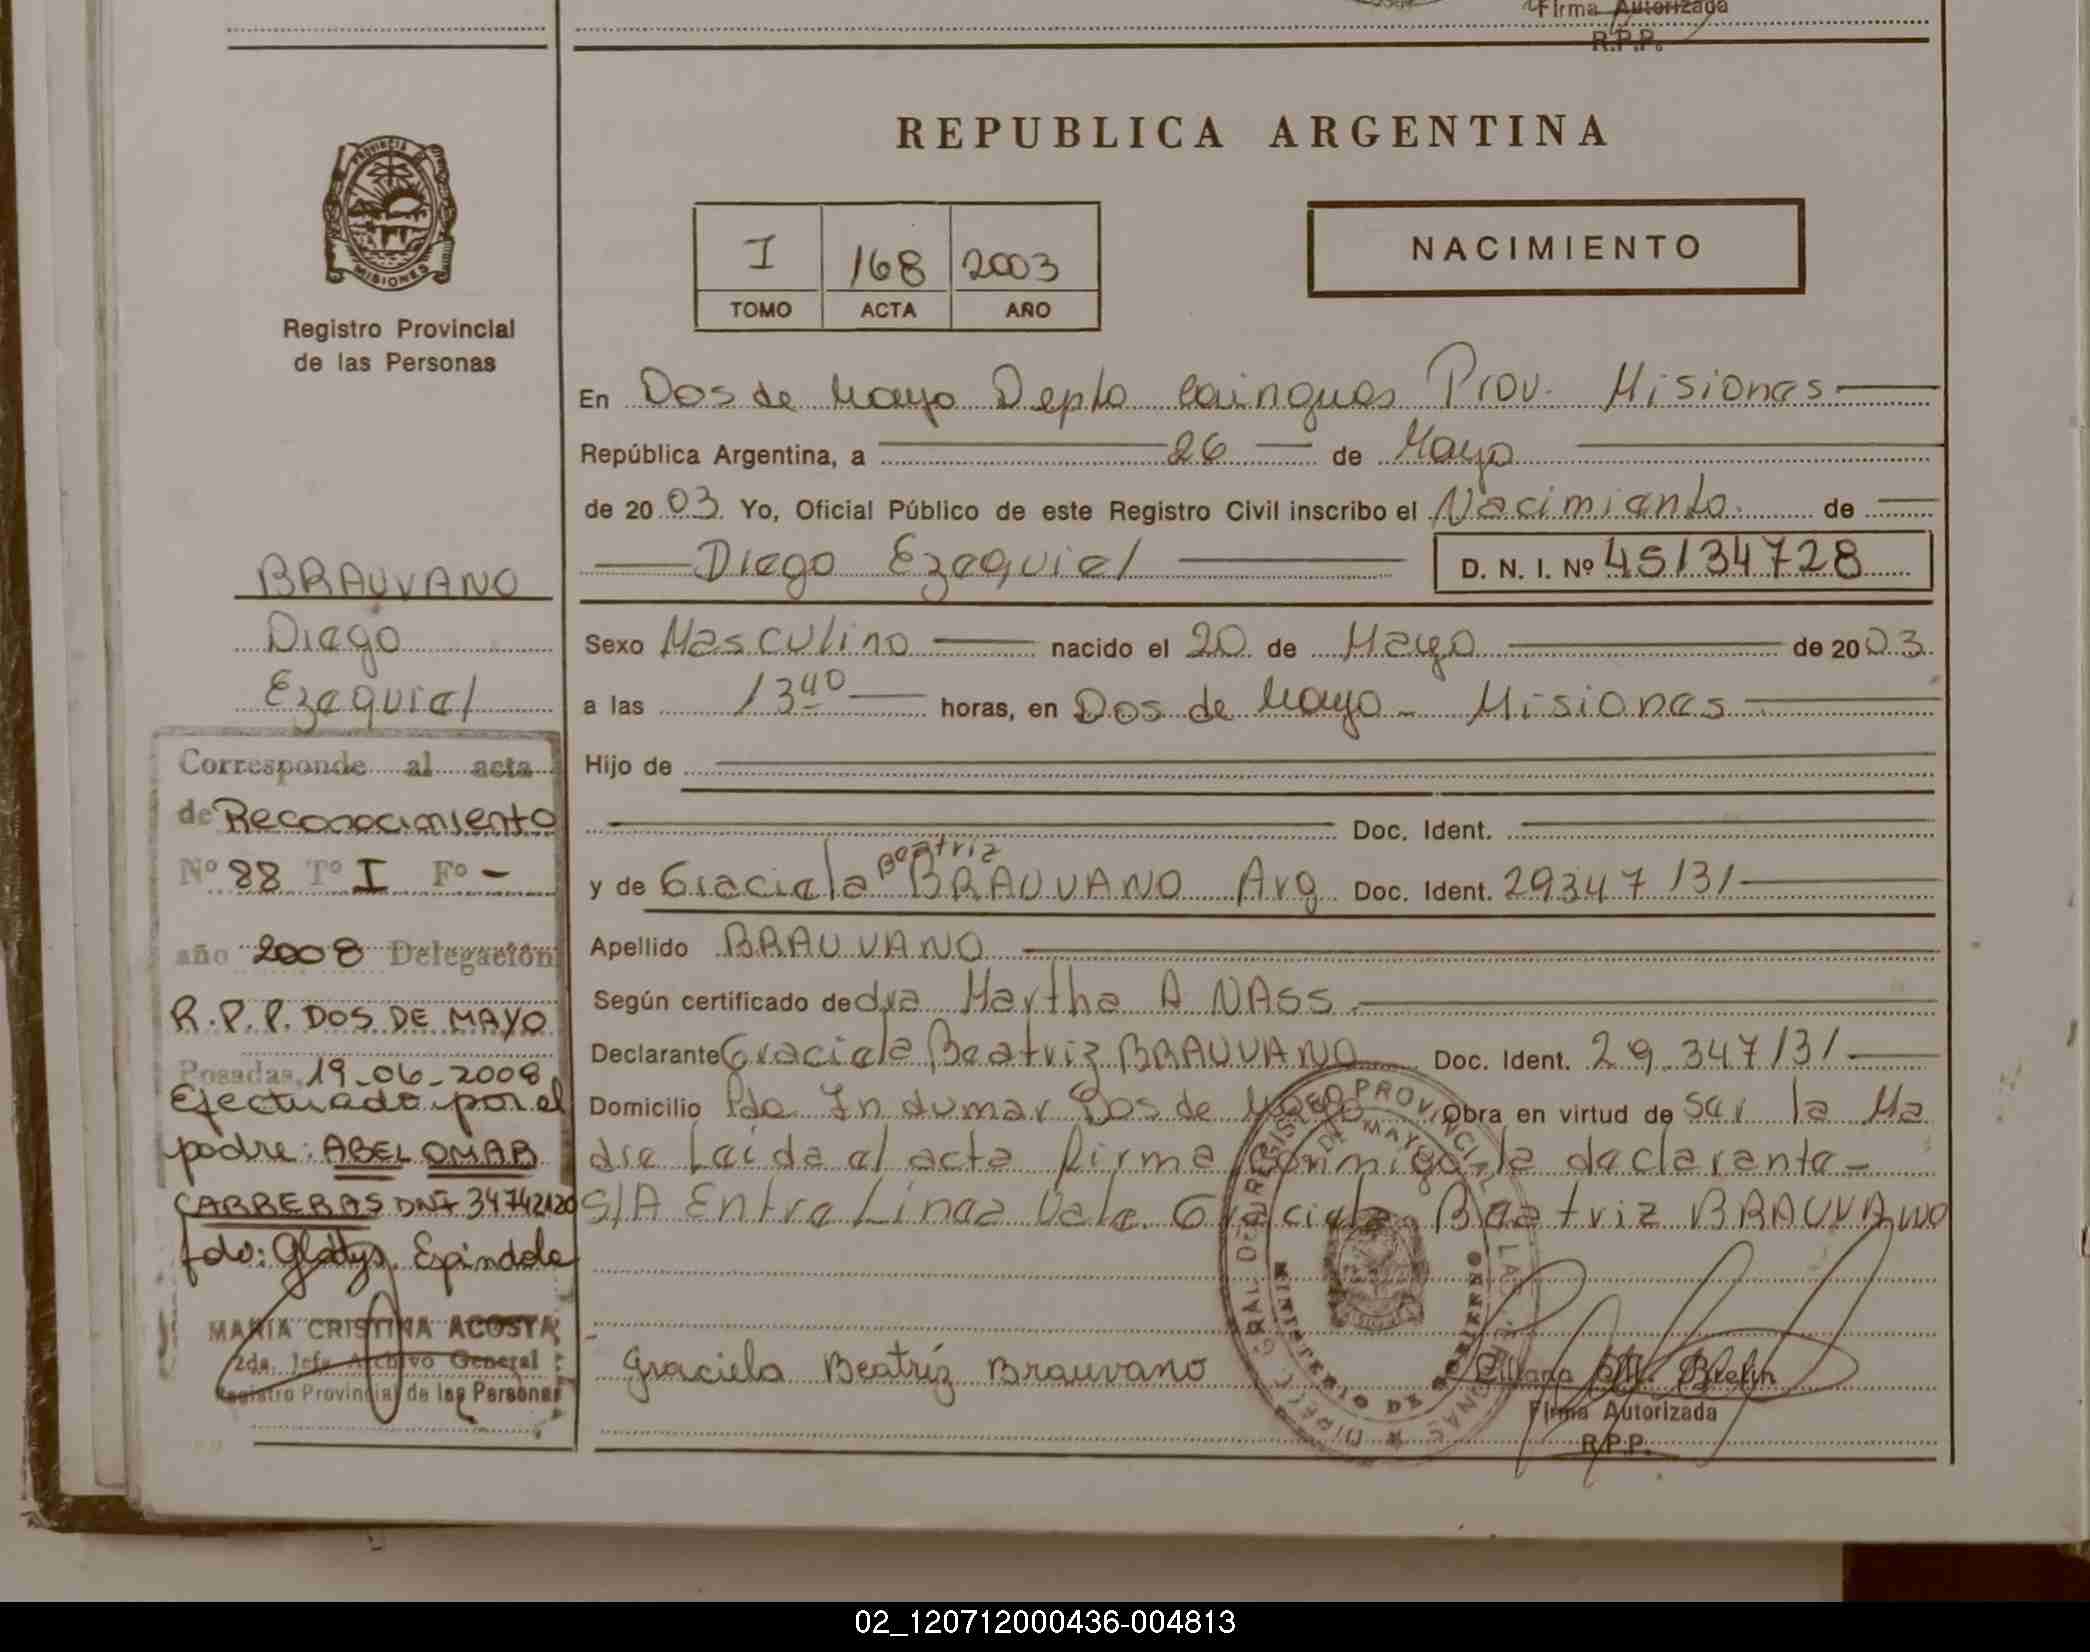 Firma Autorizada
R.P.P.
REPUBLICA ARGENTINA
PROVINCIA DE
MISIONES
Registro Provincial
de las Personas
I 168 2003
TOMO ACTA AÑO
NACIMIENTO
En Dos de Mayo Depto Cainguas Prov. Misiones
República Argentina, a 26 de Mayo
de 2003 Yo, Oficial Público de este Registro Civil inscribo el Nacimiento de
Diego Ezequiel D. N. I. Nº 45134728
Sexo Masculino nacido el 20 de Mayo de 2003
a las 13 40 horas, en Dos de Mayo - Misiones
Hijo de
Doc. Ident.
Beatriz
y de Graciela BRAUVANO Arg Doc. Ident. 29347131
Apellido BRAUVANO
Según certificado de dra Martha A NASS
Declarante Graciela Beatriz BRAUVANO Doc. Ident. 29.347131
Domicilio Pdo. Indumar Dos de Mayo Obra en virtud de ser la Ma
dre Leida el acta firma conmigo la declarante-
S/A Entre Linea Vale. Graciela Beatriz BRAUVANO
Graciela Beatríz Brauvano
Firma Autorizada
R.P.P.
BRAUVANO
Diego
Ezequiel
Corresponde al acta
de Reconocimiento
Nº 88 Tº I Fº -
año 2008 Delegación
R.P.P. DOS DE MAYO
Posadas, 19-06-2008
Efectuado por el
padre: ABEL OMAR
CARRERAS DNI 34742120
fdo: Gladys Espindola
MARIA CRISTINA ACOSTA
2da. Jefa Archivo General
Registro Provincial de las Personas
02_120712000436-004813